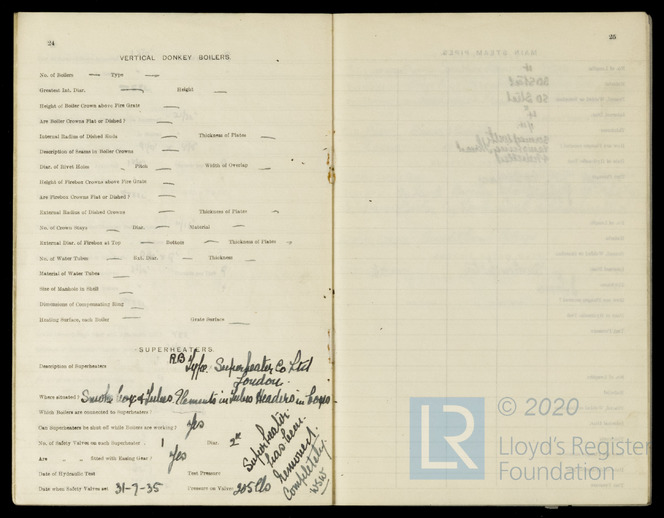 24
VERTICAL DONKEY BOILERS.
No. of Boilers — Type —
Greatest Int. Diar. — Height —
Height of Boiler Crown above Fire Grate —
Are Boiler Crowns Flat or Dished? —
Internal Radius of Dished Ends — Thickness of Plates —
Description of Seams in Boiler Crowns —
Diar. of Rivet Holes — Pitch — Width of Overlap —
Height of Firebox Crowns above Fire Grate —
Are Firebox Crowns Flat or Dished? —
External Radius of Dished Crowns — Thickness of Plates —
No. of Crown Stays — Diar. — Material —
External Diar. of Firebox at Top — Bottom — Thickness of Plates —
No. of Water Tubes — Ext. Diar. — Thickness —
Material of Water Tubes —
Size of Manhole in Shell —
Dimensions of Compensating Ring —
Heating Surface, each Boiler — Grate Surface —
SUPERHEATERS.
Description of Superheaters R.B. Type. Superheater Co Ltd
London.
Where situated? Smoke Box & Tubes Elements in Tubes Headers in Boxes.
Which Boilers are connected to Superheaters?
Can Superheaters be shut off while Boilers are working? Yes
No. of Safety Valves on each Superheater 1 Diar. 2"
Are " " fitted with Easing Gear? Yes
Date of Hydraulic Test Test Pressure
Date when Safety Valves set 31-7-35 Pressure on Valves 205 lbs
Superheater
has been
removed
completely.
WSW
25
© 2020
LR
Lloyd's Register
Foundation